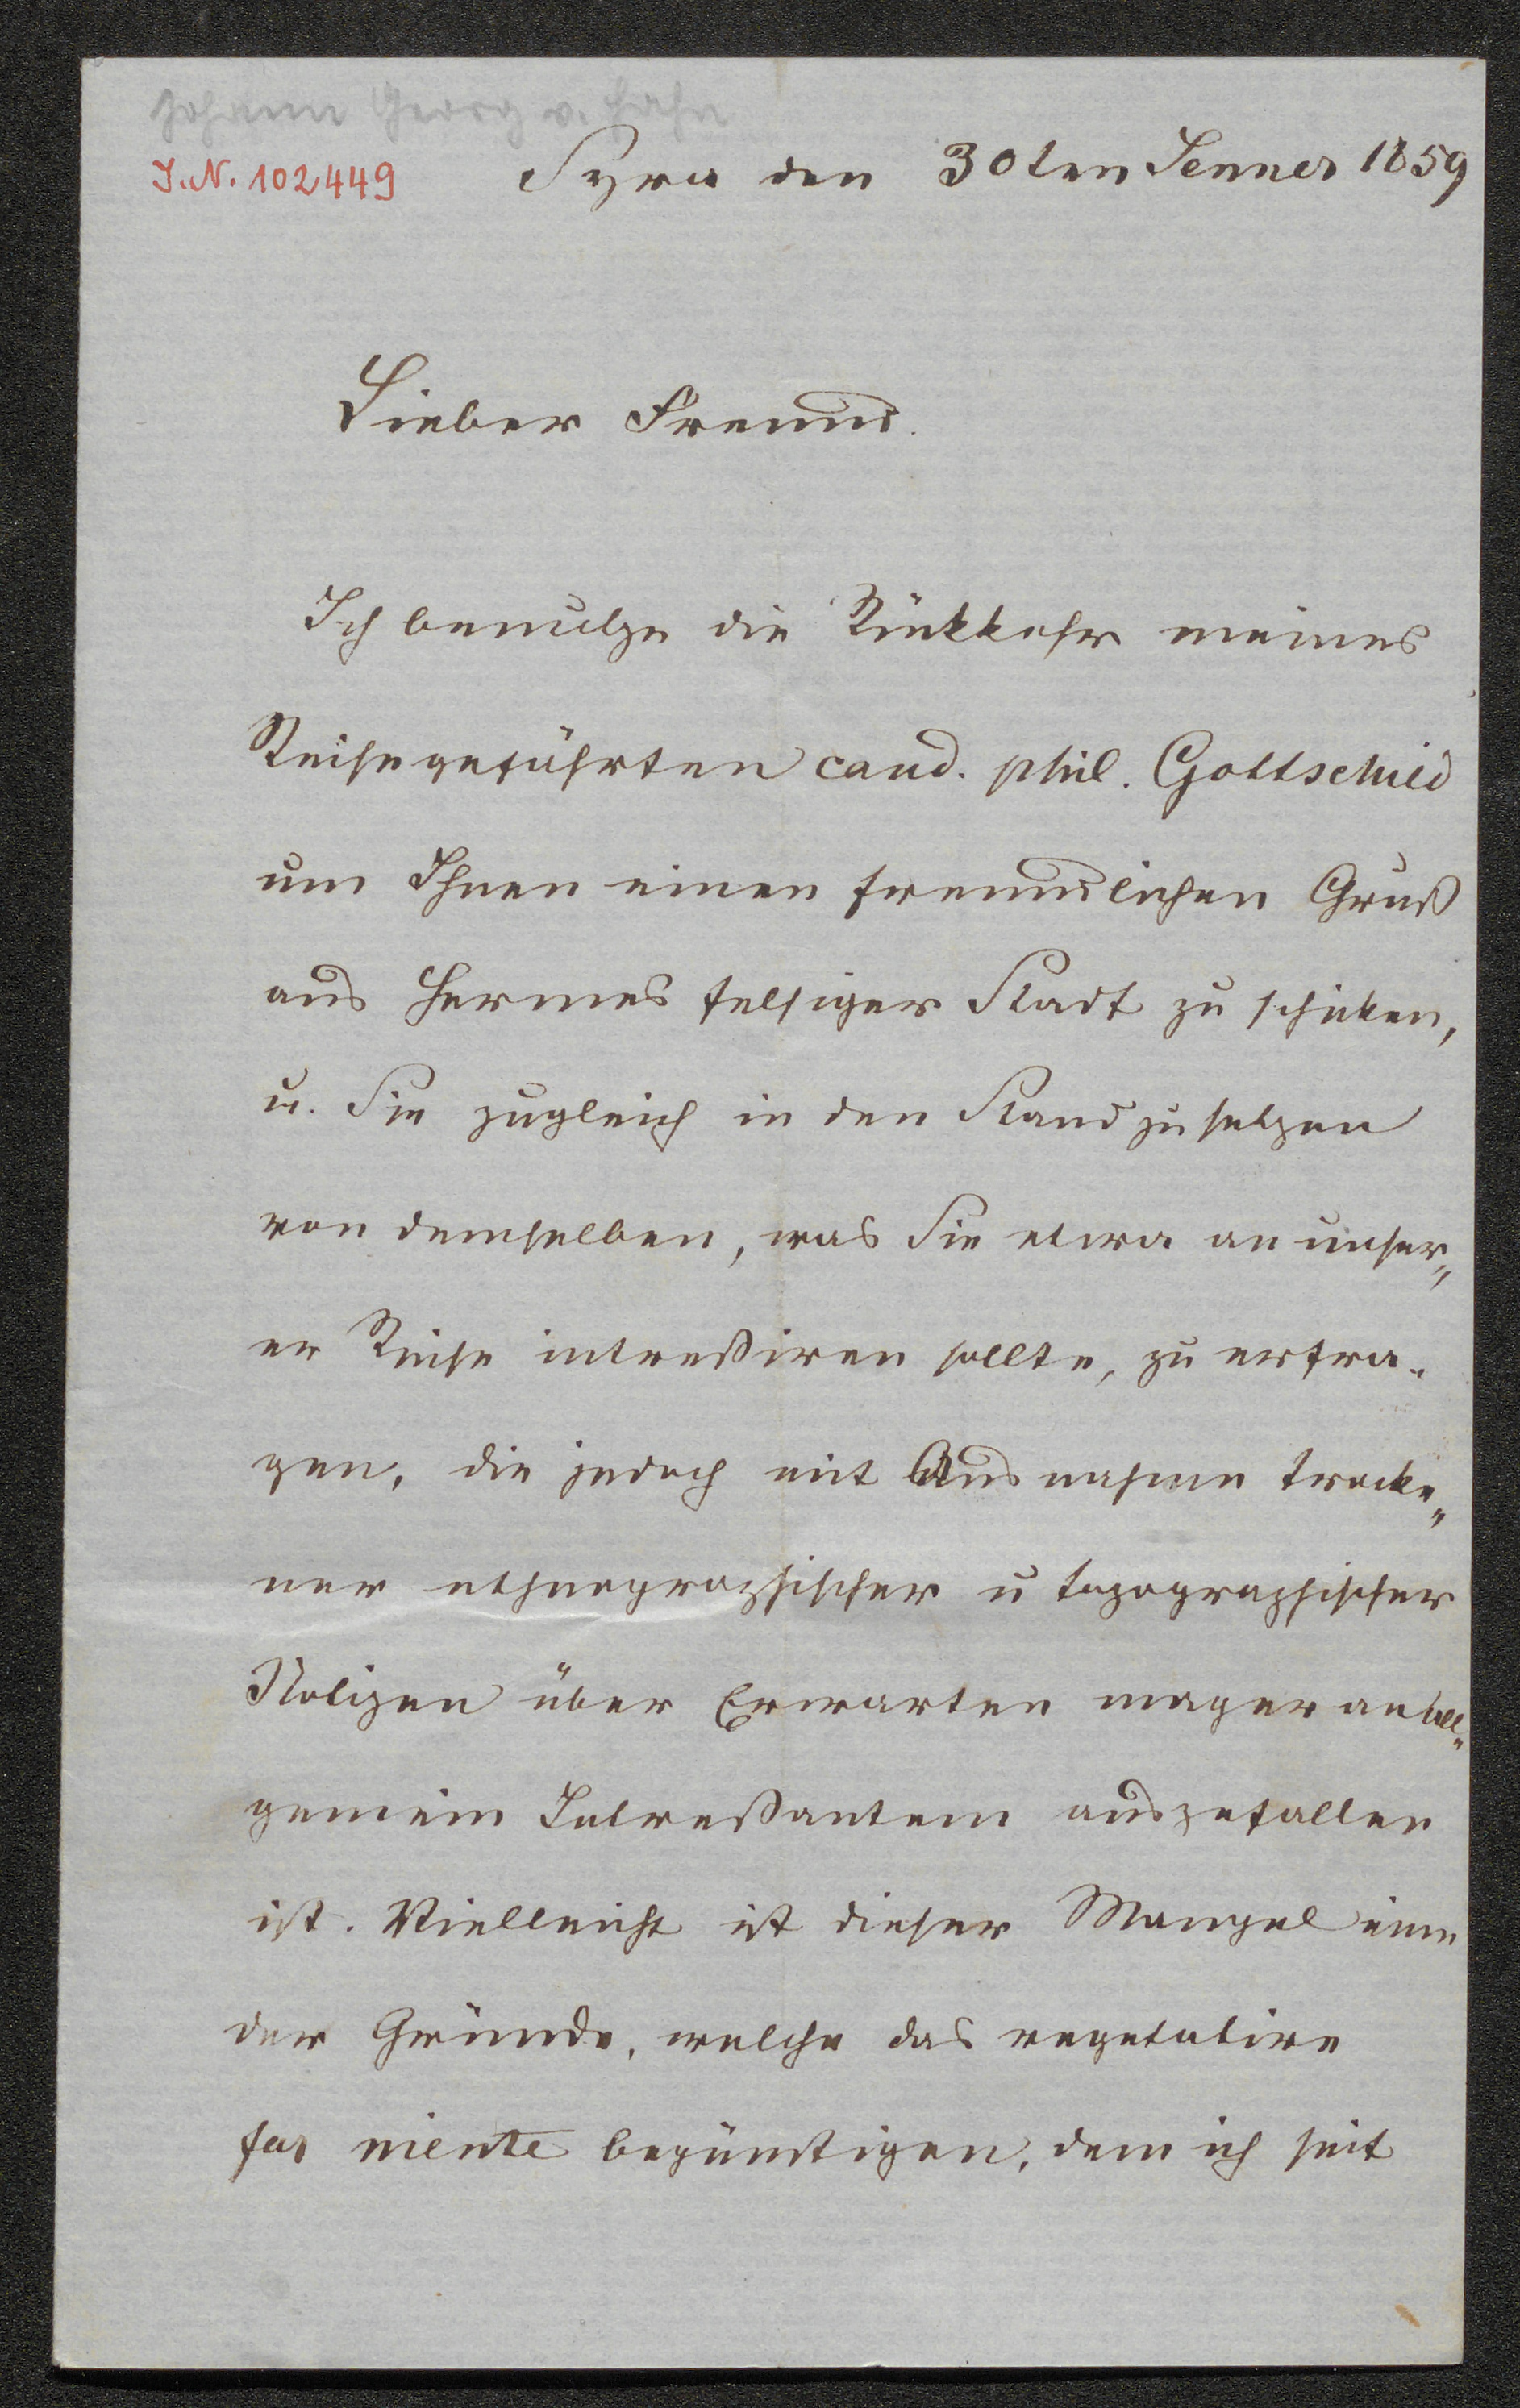 Johann Georg v. Hahn
J.N. 102449
Syra den 30ten Jenner 1859
Lieber Freund.
Ich benutze die Rückkehr meines
Reisegefährten cand. phil. Gottschild
um Ihnen einen freundlichen Gruß
aus Hermes felsiger Stadt zu schicken,
u. Sie zugleich in den Stand zu setzen
von demselben, was Sie etwa an unser„
er Reise intreßiren sollte, zu erfra„
gen, die jedoch mit Ausnahme trocke„
ner ethnographischer u topographischer
Notizen über Erwarten mager an all„
gemein Intreßantem ausgefallen
ist. Vielleicht ist dieser Mangel einer
der Gründe, welche das vegetative
far niente begünstigen, dem ich seit